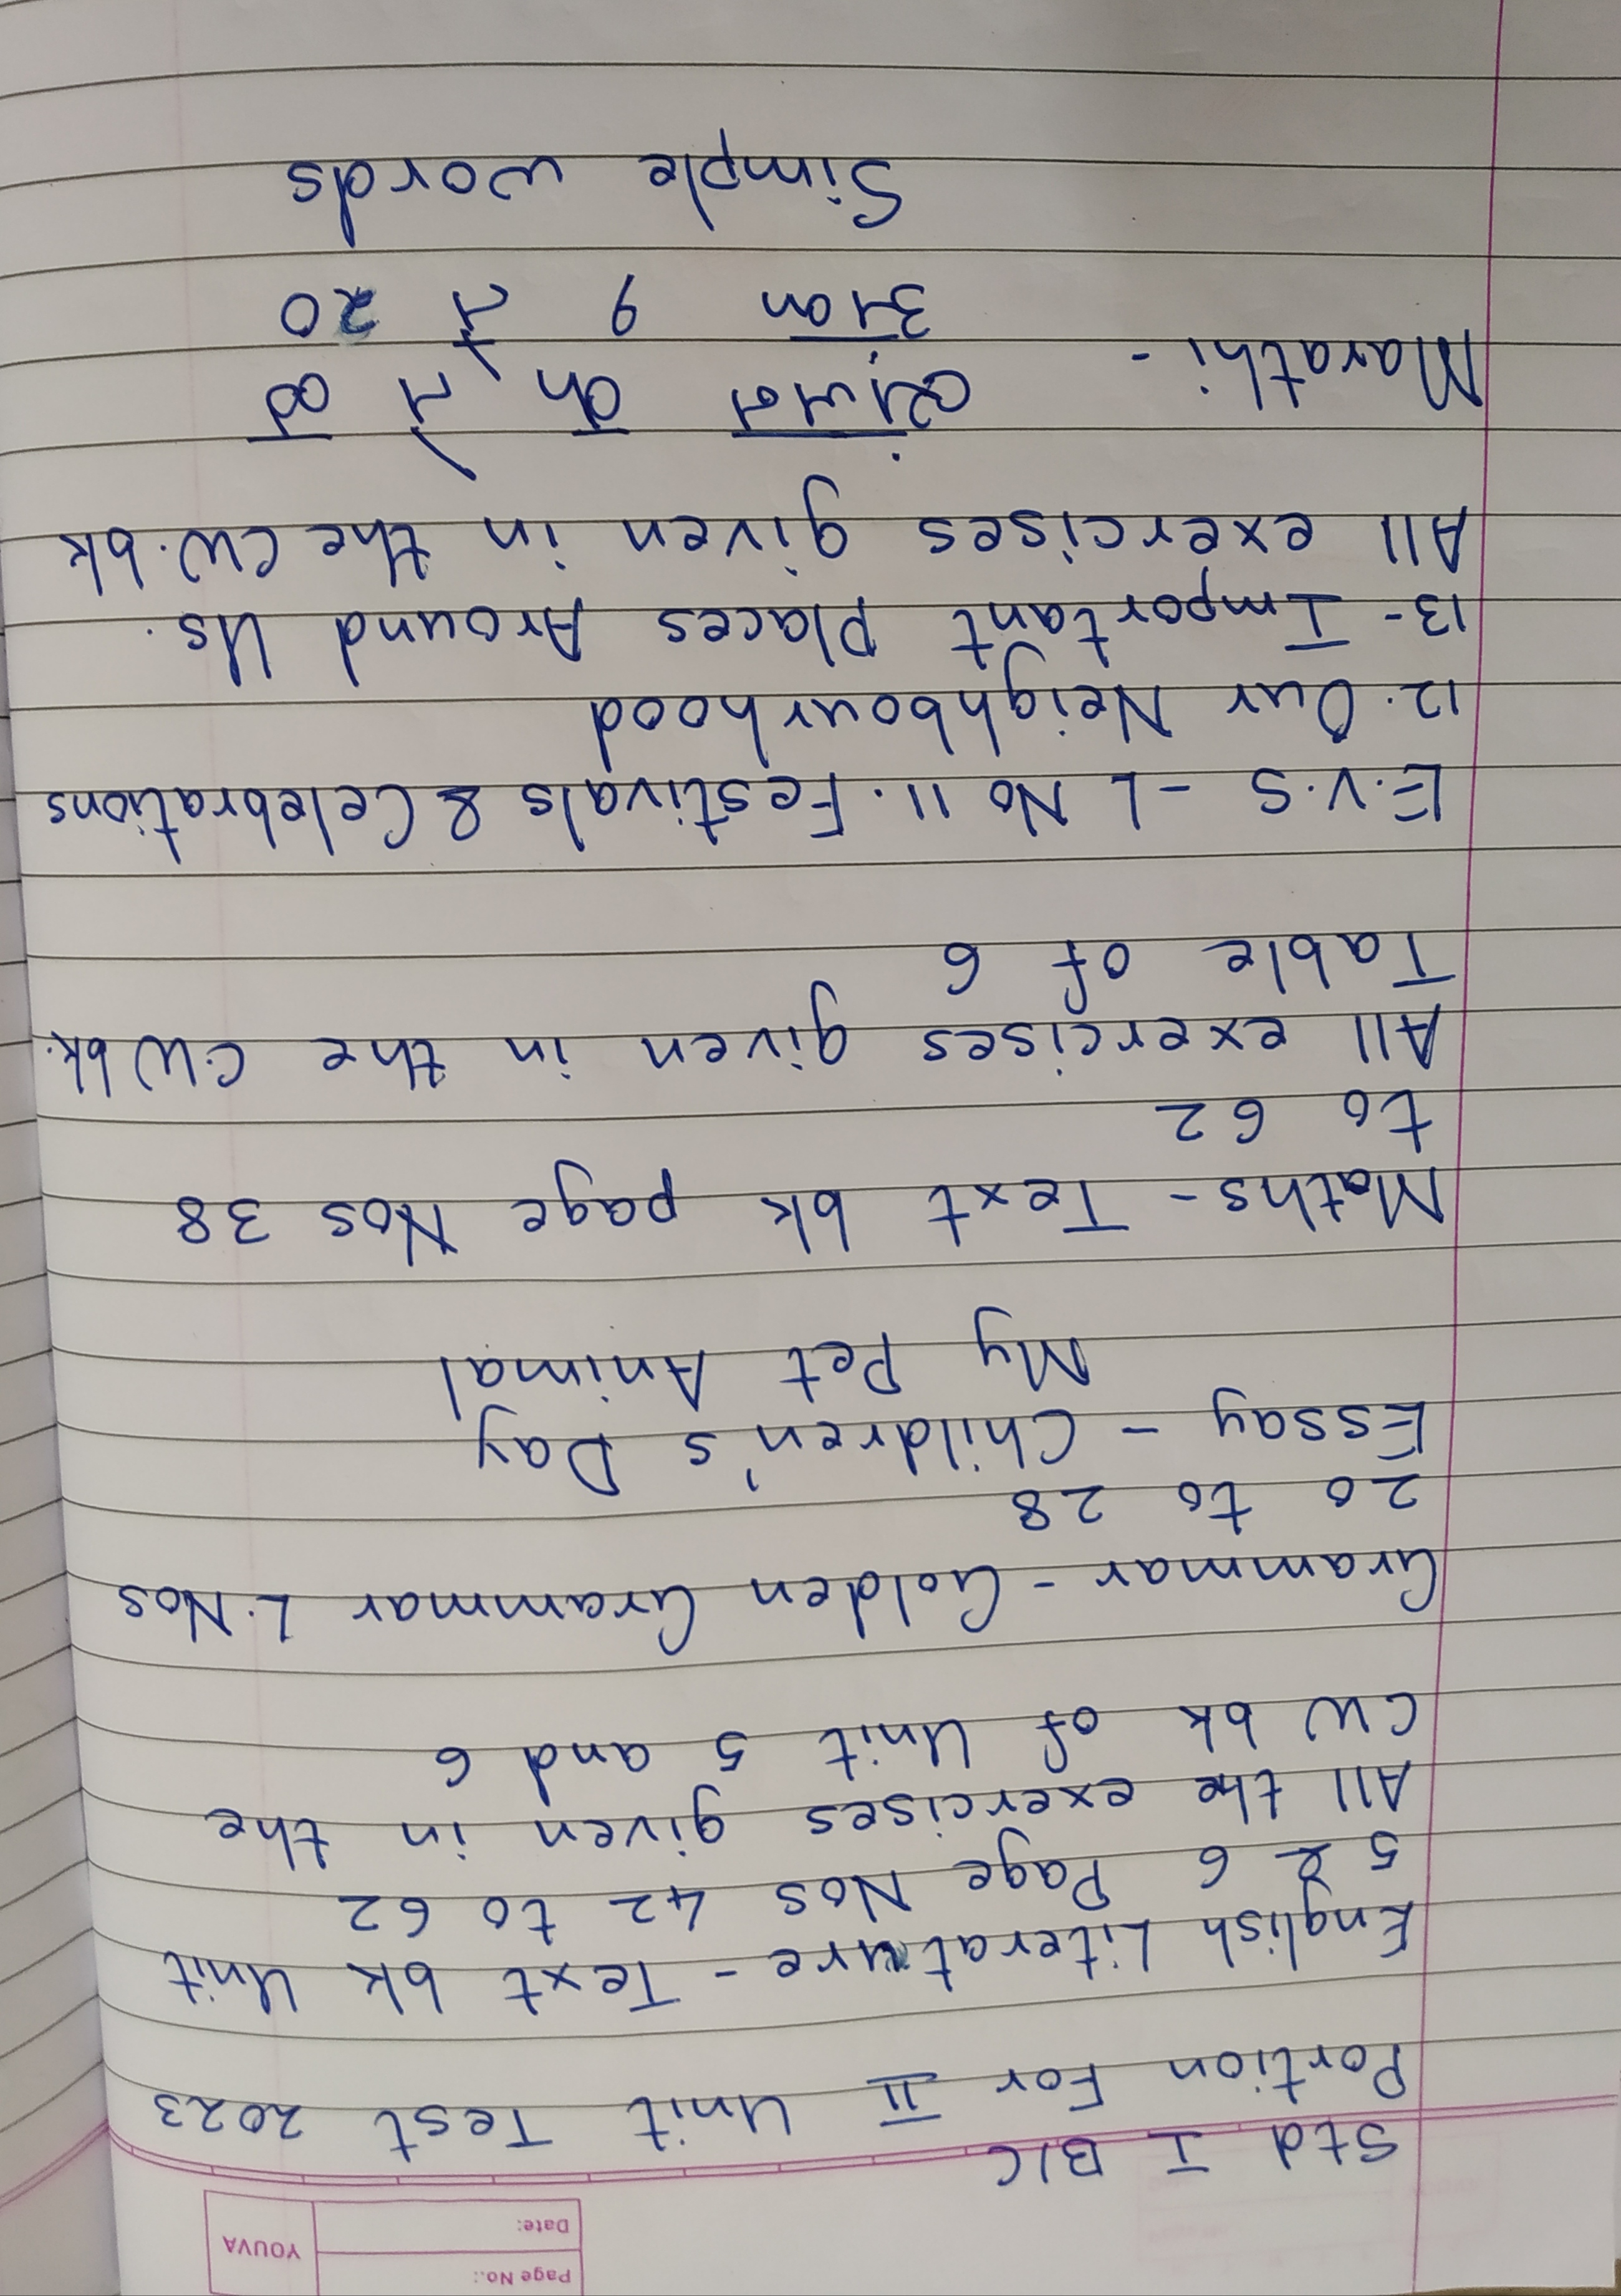 Page No.:
Date:
YOUVA
Std I B/C
Portion For II Unit Test 2023
English Literature - Text bk Unit
5 & 6 Page Nos 42 to 62
All the exercises given in the
CW bk of Unit 5 and 6
Grammar - Golden Grammar L.Nos
20 to 28
Essay - Children's Day
My Pet Animal
Maths - Text bk page Nos 38
to 62
All exercises given in the C.W bk.
Table of 6
E.V.S - L No 11. Festivals & Celebrations
12. Our Neighbourhood
13- Important Places Around Us.
All exercises given in the CW.bk
Marathi - व्यंजन क ते ळ
अंक १ ते २०
Simple words